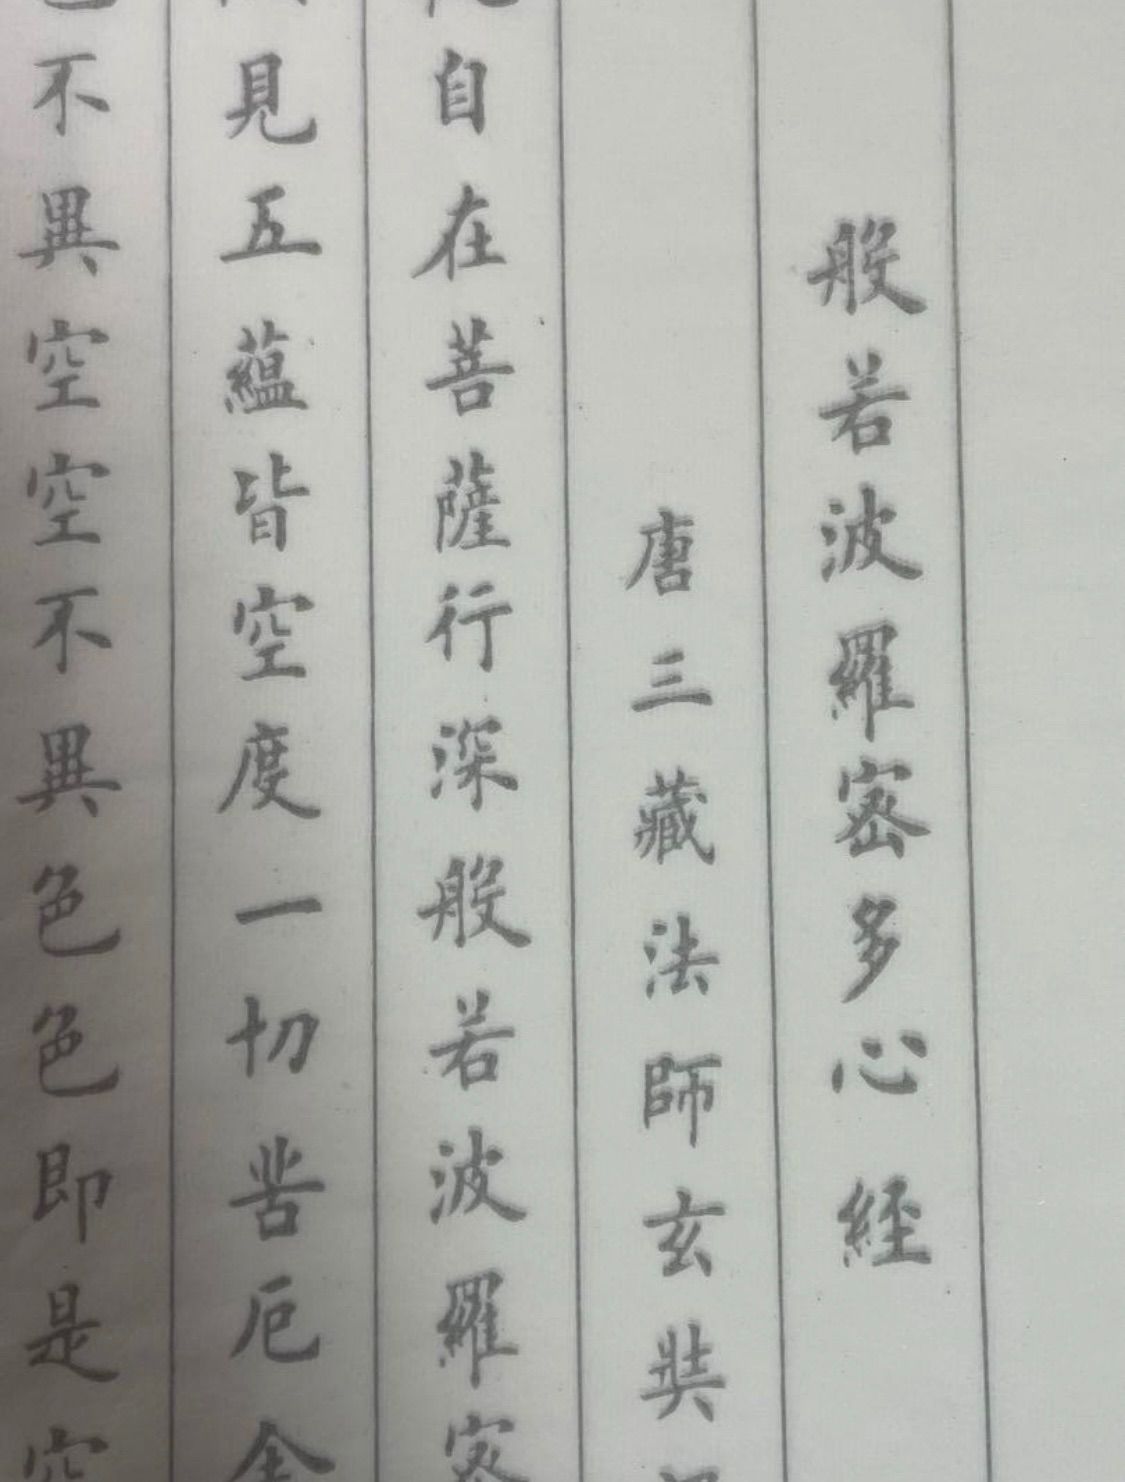 般若波羅蜜多心經
唐三藏法師玄奘
自在菩薩行深般若波羅蜜
見五蘊皆空度一切苦厄舍
不異空空不異色色即是空